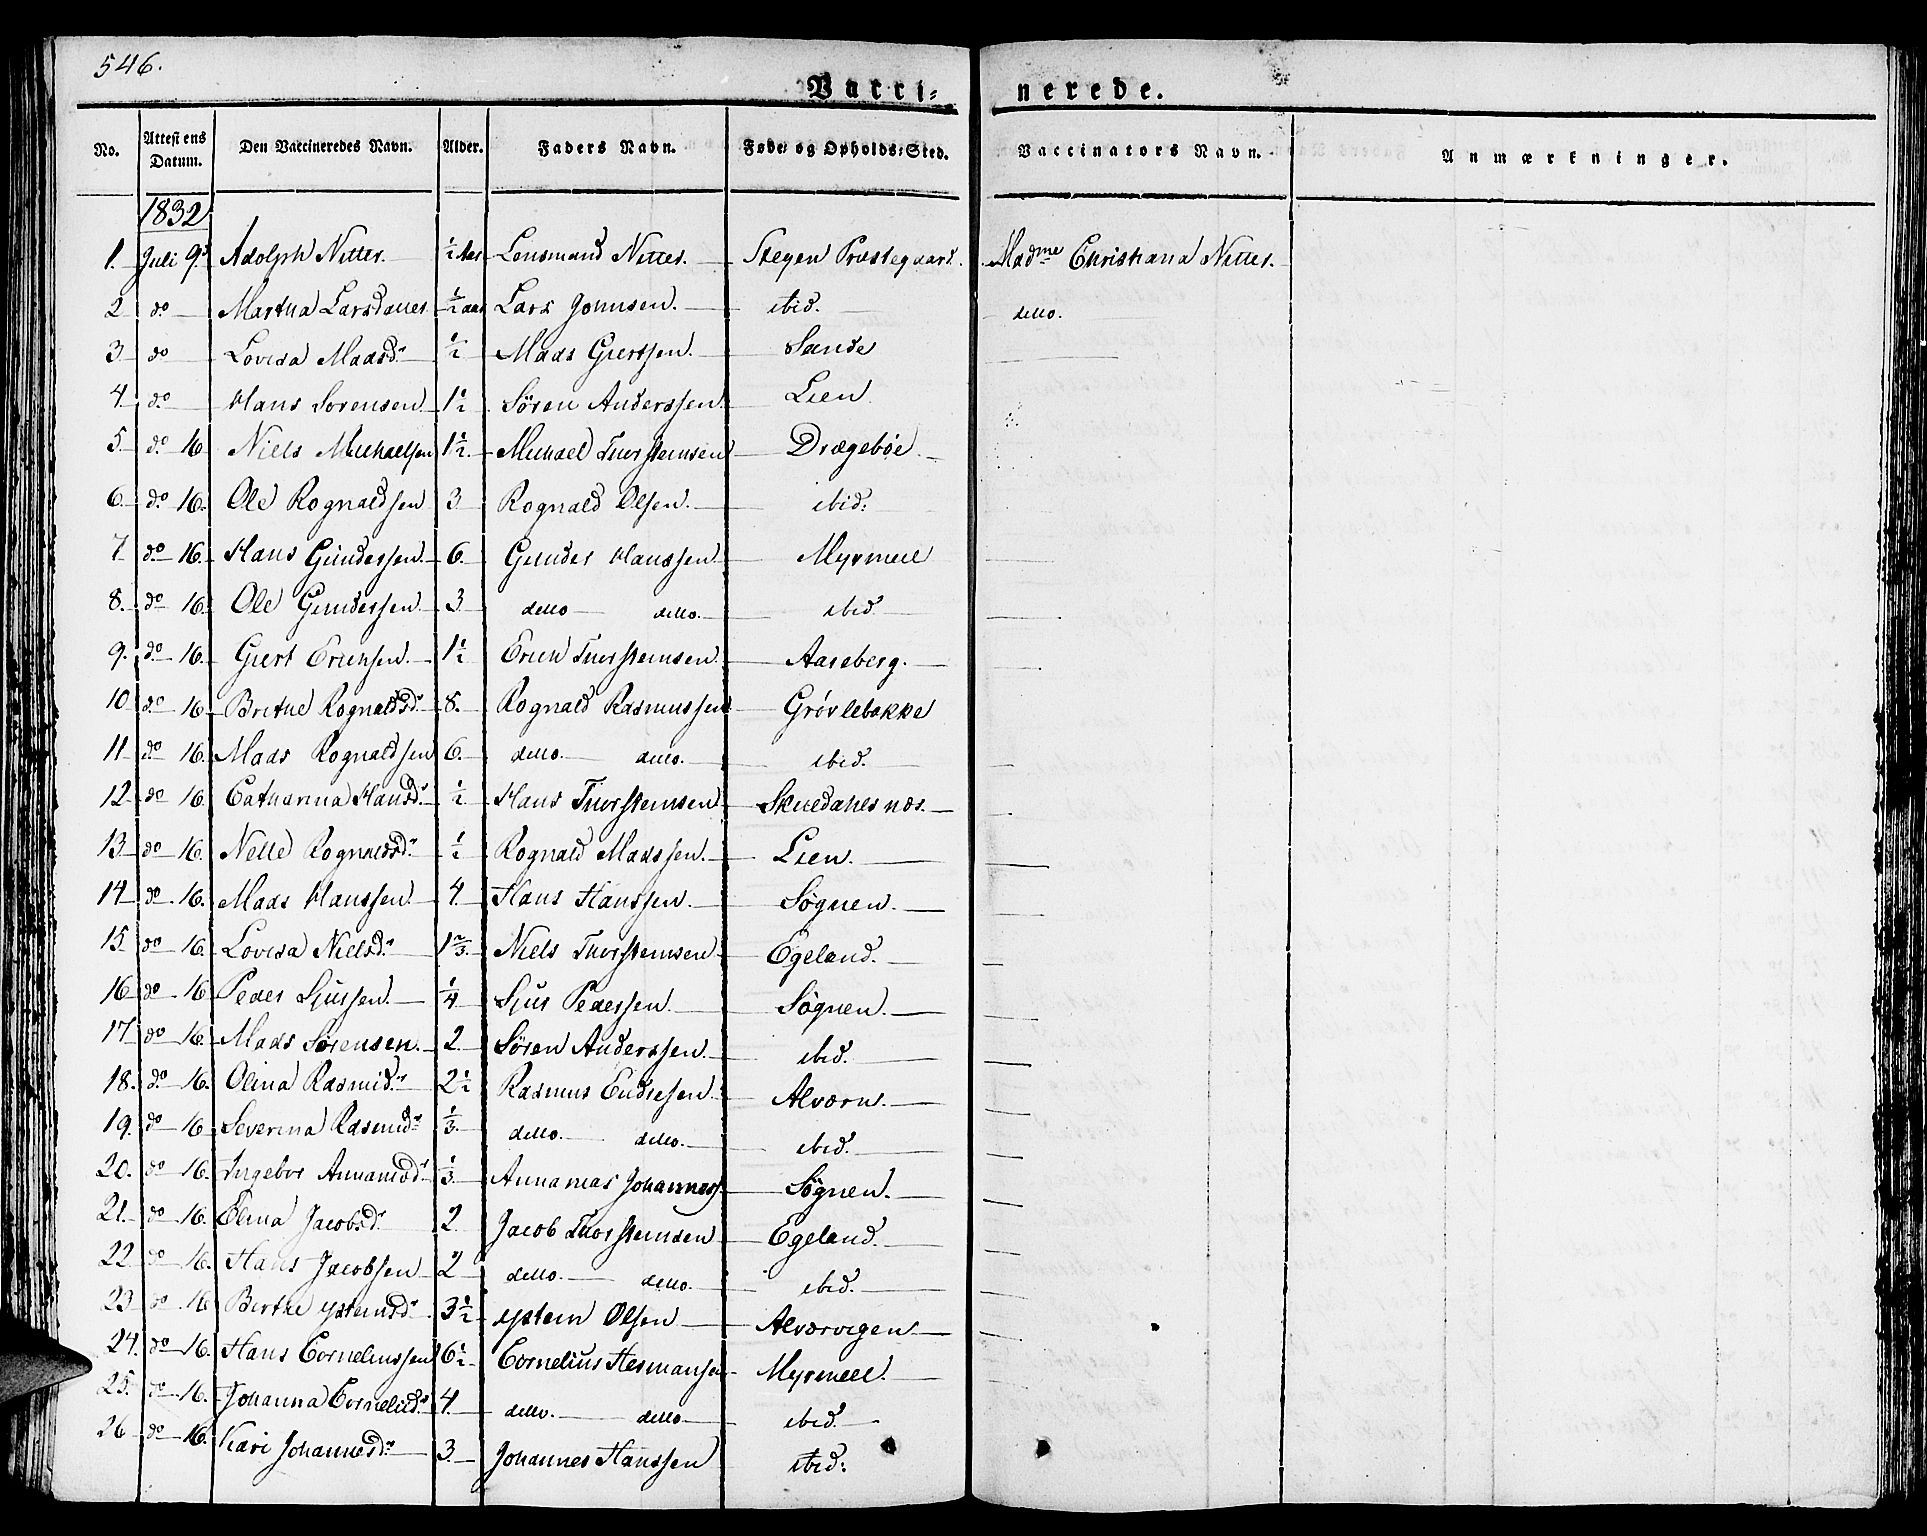 546.
Vacci- nerede.
No. Attestens Datum. Den Vaccineredes Navn. Alder. Faders Navn. Føde- og Opholds-Sted. Vaccinators Navn. Anmærkninger.
1832
1. Juli 9d Adolph Nitter. ½ Aar Lensmand Nitter. Steyen Præstegaard. Madme Christiana Nitter.
2 do Martha Larsdatter ½ aar Lars Johnsen. ibid. detto.
3 do Lovisa Madsdr ½ Mads Giertsen. Sande
4 do Hans Sørensen 1½ Sören Anderssen. Lien
5 do 16 Niels Michaelsen 1½ Michael Thorsteinsen Drægebøe
6. do 16. Ole Rognaldsen 3 Rognald Olsen. ibid:
7 do 16. Hans Gunderssen 6. Gunder Hanssen Myrmell
8. do 16. Ole Gunderssen 3 detto detto. ibid
9. do 16. Giert Erichsen. 1½ Erich Thorsteinsen Aaseberg.
10 do 16 Brithe Rognaldsdr 8. Rognald Rasmussen Grøvlebakke
11 do 16. Mads Rognaldsen 6. detto. detto. ibid.
12 do 16. Catharina Hansdr ½ Hans Thorsteinsen Skuedahlsnæs.
13 do 16. Nelle Rognaldsdr ½ Rognald Madssen. Lien.
14 do 16. Mads Hanssen. 4. Hans Hanssen. Søgnen.
15 do 16. Lovisa Nielsdr 1⅔. Niels Thorsteinsen Egeland.
16 do 16 Peder Sjurssen. ¼ Sjur Pederssen Søgnen.
17 do 16. Mads Sørensen. 2. Sören Anderssen. ibid.
18. do 16. Olina Rasmidr 2½ Rasmus Endresen. Alværn.
19. do 16 Severina Rasmidr ⅓. detto. detto. ibid.
20. do 16. Ingebor Annaniasdr ⅓. Annanias Johanness. Søgnen.
21. do 16. Elina Jacobsdr 2 Jacob Thorsteinsen Egeland.
22 do 16. Hans Jacobsen 2 detto. detto. ibid.
23 do 16 Birthe ysteinsdr 3½ ystein Olsen Alværvigen
24. do 16. Hans Corneliussen 6½ Cornelius Hermansen Myrmell.
25. do 16. Johanna Cornelidr 4. detto. detto ibid.
26 do 16. Kari Johannesdr 3. Johannes Hanssen ibid: